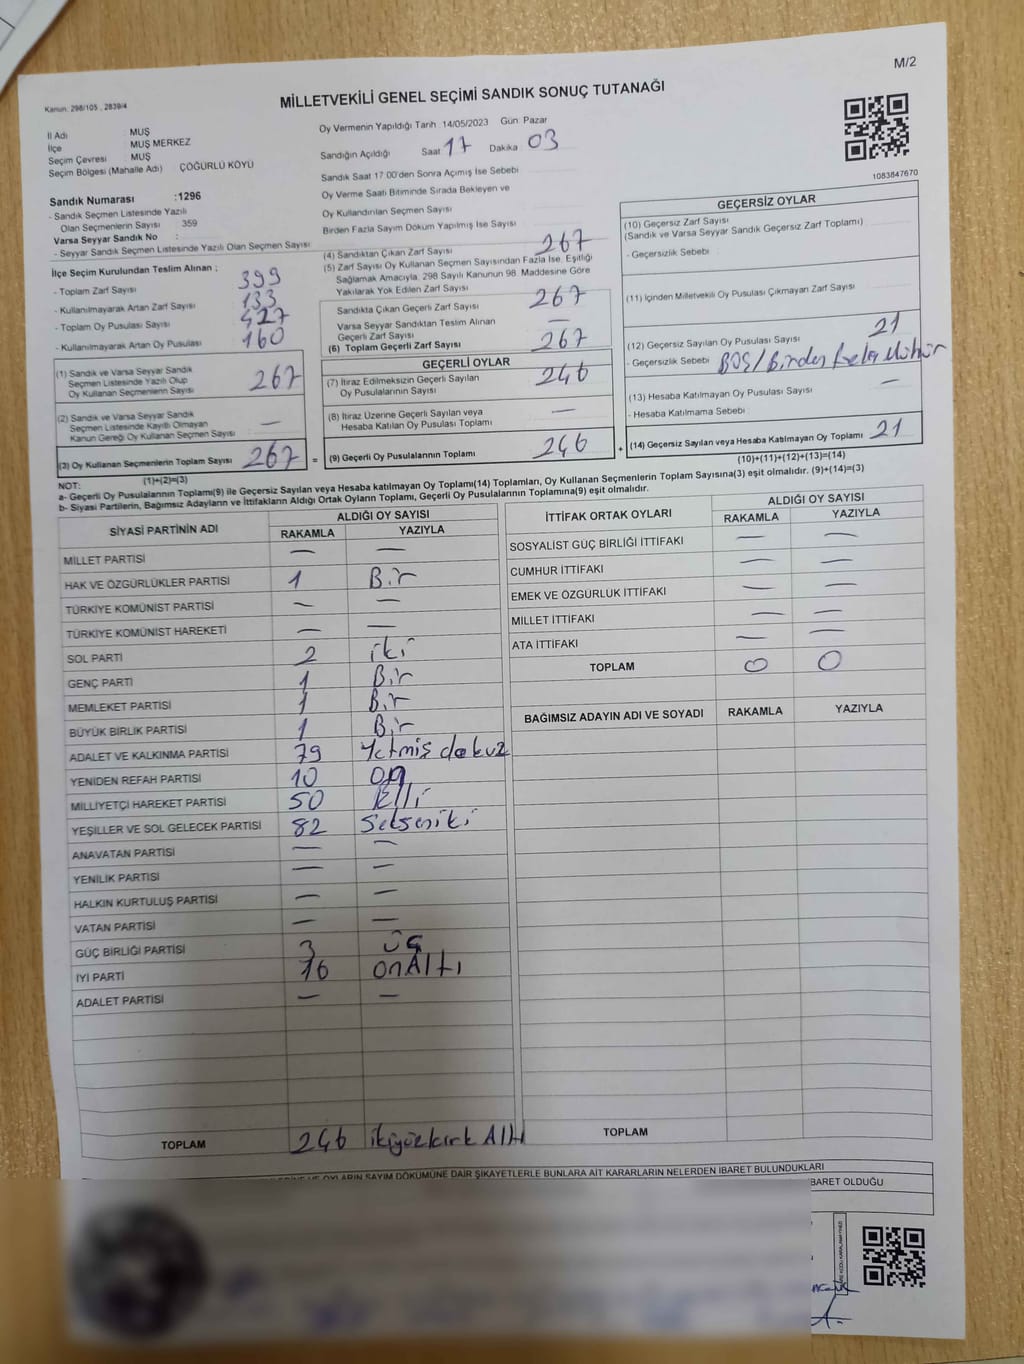 M/2
Kanun: 298/105 , 2839/4
MİLLETVEKİLİ GENEL SEÇİMİ SANDIK SONUÇ TUTANAĞI
İl Adı MUŞ
İlçe MUŞ MERKEZ
Seçim Çevresi MUŞ
Seçim Bölgesi (Mahalle Adı) ÇÖĞÜRLÜ KÖYÜ
Sandık Numarası :1296
- Sandık Seçmen Listesinde Yazılı
Olan Seçmenlerin Sayısı : 359
Varsa Seyyar Sandık No :
- Seyyar Sandık Seçmen Listesinde Yazılı Olan Seçmen Sayısı
İlçe Seçim Kurulundan Teslim Alınan ;
- Toplam Zarf Sayısı 399
- Kullanılmayarak Artan Zarf Sayısı 133
- Toplam Oy Pusulası Sayısı 427
- Kullanılmayarak Artan Oy Pusulası 160
(1) Sandık ve Varsa Seyyar Sandık
Seçmen Listesinde Yazılı Olup
Oy Kullanan Seçmenlerin Sayısı 267
(2) Sandık ve Varsa Seyyar Sandık
Seçmen Listesinde Kayıtlı Olmayan
Kanun Gereği Oy Kullanan Seçmen Sayısı —
(3) Oy Kullanan Seçmenlerin Toplam Sayısı 267 =
(1)+(2)=(3)
Oy Vermenin Yapıldığı Tarih 14/05/2023 Gün Pazar
Sandığın Açıldığı Saat 17 Dakika 03
Sandık Saat 17:00'den Sonra Açımış İse Sebebi
Oy Verme Saati Bitiminde Sırada Bekleyen ve
Oy Kullandırılan Seçmen Sayısı
Birden Fazla Sayım Döküm Yapılmış İse Sayısı
(4) Sandıktan Çıkan Zarf Sayısı 267
(5) Zarf Sayısı Oy Kullanan Seçmen Sayısından Fazla İse, Eşitliği
Sağlamak Amacıyla, 298 Sayılı Kanunun 98. Maddesine Göre
Yakılarak Yok Edilen Zarf Sayısı
Sandıkta Çıkan Geçerli Zarf Sayısı 267
Varsa Seyyar Sandıktan Teslim Alınan
Geçerli Zarf Sayısı —
(6) Toplam Geçerli Zarf Sayısı 267
GEÇERLİ OYLAR
(7) İtiraz Edilmeksizin Geçerli Sayılan
Oy Pusulalarının Sayısı 246
(8) İtiraz Üzerine Geçerli Sayılan veya
Hesaba Katılan Oy Pusulası Toplamı —
(9) Geçerli Oy Pusulalarının Toplamı 246 +
1083847670
GEÇERSİZ OYLAR
(10) Geçersiz Zarf Sayısı
(Sandık ve Varsa Seyyar Sandık Geçersiz Zarf Toplamı)
- Geçersizlik Sebebi
(11) İçinden Milletvekili Oy Pusulası Çıkmayan Zarf Sayısı
(12) Geçersiz Sayılan Oy Pusulası Sayısı 21
- Geçersizlik Sebebi BOŞ/Birden fazla Mühür
(13) Hesaba Katılmayan Oy Pusulası Sayısı —
- Hesaba Katılmama Sebebi
(14) Geçersiz Sayılan veya Hesaba Katılmayan Oy Toplamı 21
(10)+(11)+(12)+(13)=(14)
NOT:
a- Geçerli Oy Pusulalarının Toplamı(9) ile Geçersiz Sayılan veya Hesaba katılmayan Oy Toplamı(14) Toplamları, Oy Kullanan Seçmenlerin Toplam Sayısına(3) eşit olmalıdır. (9)+(14)=(3)
b- Siyasi Partilerin, Bağımsız Adayların ve İttifakların Aldığı Ortak Oyların Toplamı, Geçerli Oy Pusulalarının Toplamına(9) eşit olmalıdır.
SİYASİ PARTİNİN ADI ALDIĞI OY SAYISI
RAKAMLA YAZIYLA
MİLLET PARTİSİ — —
HAK VE ÖZGÜRLÜKLER PARTİSİ 1 Bir
TÜRKİYE KOMÜNİST PARTİSİ — —
TÜRKİYE KOMÜNİST HAREKETİ — —
SOL PARTİ 2 iki
GENÇ PARTİ 1 Bir
MEMLEKET PARTİSİ 1 Bir
BÜYÜK BİRLİK PARTİSİ 1 Bir
ADALET VE KALKINMA PARTİSİ 79 Yetmiş dokuz
YENİDEN REFAH PARTİSİ 10 on
MİLLİYETÇİ HAREKET PARTİSİ 50 Elli
YEŞİLLER VE SOL GELECEK PARTİSİ 82 Seksen iki
ANAVATAN PARTİSİ — —
YENİLİK PARTİSİ — —
HALKIN KURTULUŞ PARTİSİ — —
VATAN PARTİSİ — —
GÜÇ BİRLİĞİ PARTİSİ 3 üç
İYİ PARTİ 16 onAltı
ADALET PARTİSİ — —
TOPLAM 246 ikiyüzkırk Altı
İTTİFAK ORTAK OYLARI ALDIĞI OY SAYISI
RAKAMLA YAZIYLA
SOSYALİST GÜÇ BİRLİĞİ İTTİFAKI — —
CUMHUR İTTİFAKI — —
EMEK VE ÖZGÜRLÜK İTTİFAKI — —
MİLLET İTTİFAKI — —
ATA İTTİFAKI — —
TOPLAM 0 0
BAĞIMSIZ ADAYIN ADI VE SOYADI RAKAMLA YAZIYLA
TOPLAM
OYLARIN SAYIM DÖKÜMÜNE DAİR ŞİKAYETLERLE BUNLARA AİT KARARLARIN NELERDEN İBARET BULUNDUKLARI
İBARET OLDUĞU